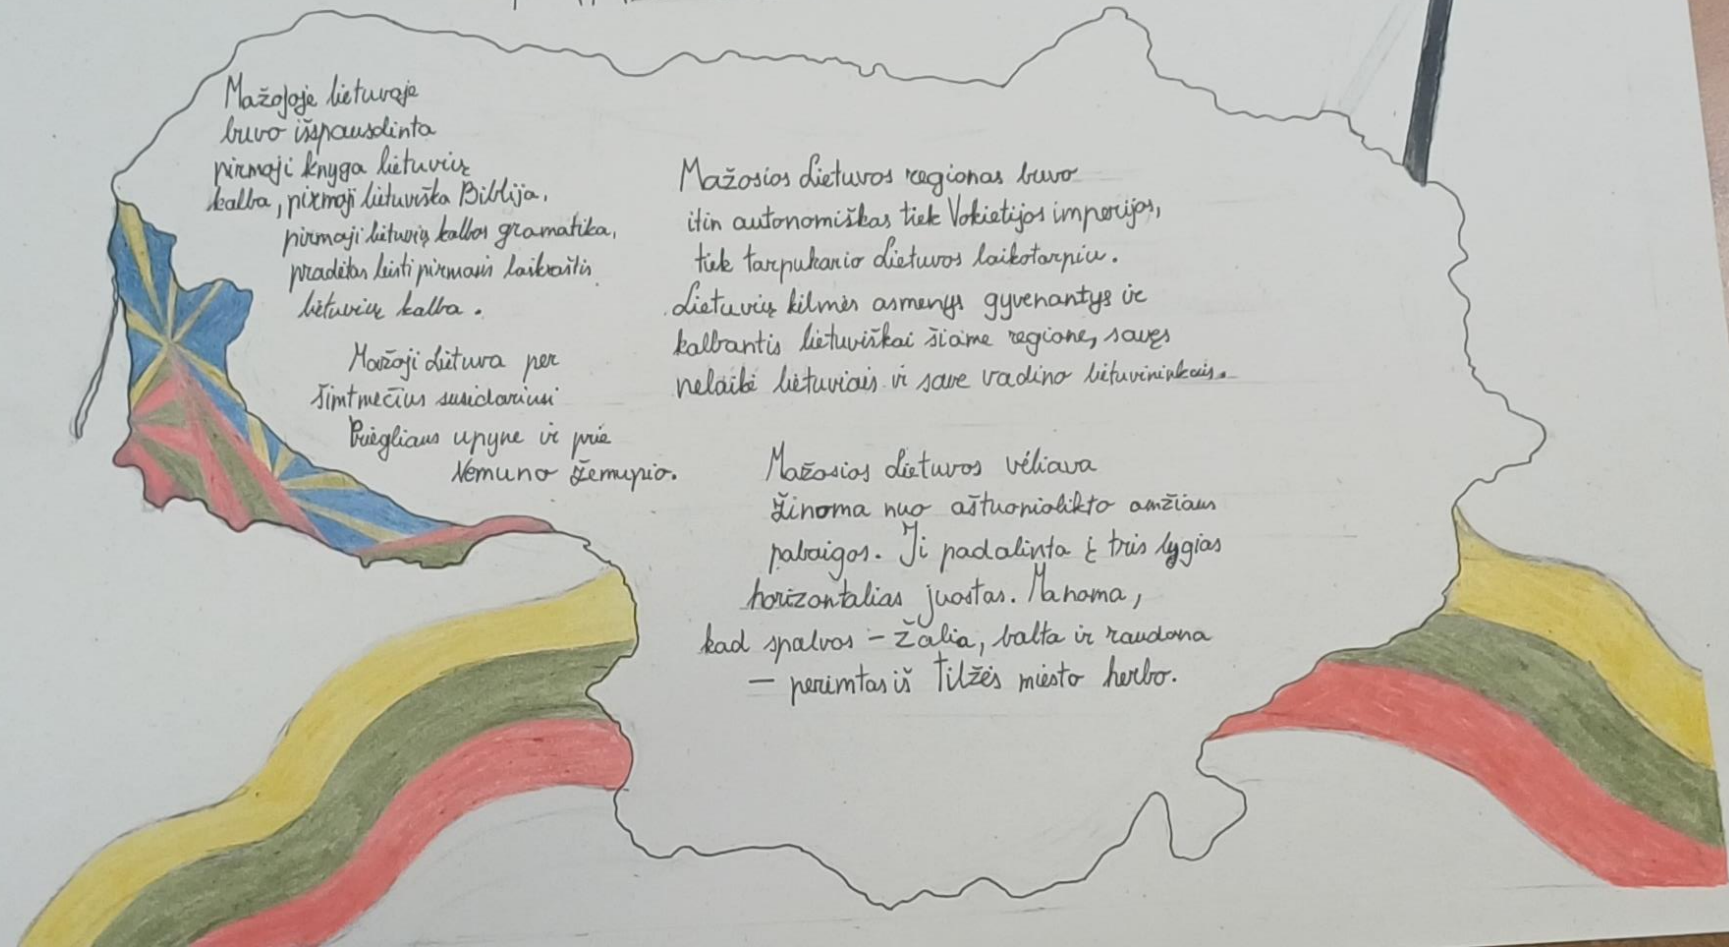 Mažojoje lietuvoje
buvo išspausdinta
pirmoji knyga lietuvių
kalba, pirmoji lietuviška Biblija,
pirmoji lietuvių kalbos gramatika,
pradėtas leisti pirmasis laikraštis
lietuvių kalba.
Mažoji Lietuva per
šimtmečius susidariusi
Priegliaus upyne ir prie
Nemuno žemupio.
Mažosios Lietuvos regionas buvo
itin autonomiškas tiek Vokietijos imperijos,
tiek tarpukario Lietuvos laikotarpiu.
Lietuvių kilmės asmenys gyvenantys ir
kalbantis lietuviškai šiame regione, savęs
nelaikė lietuviais ir save vadino lietuvininkais.
Mažosios Lietuvos vėliava
žinoma nuo aštuoniolikto amžiaus
pabaigos. Ji padalinta į tris lygias
horizontalias juostas. Manoma,
kad spalvos – žalia, balta ir raudona
– perimtas iš Tilžės miesto herbo.